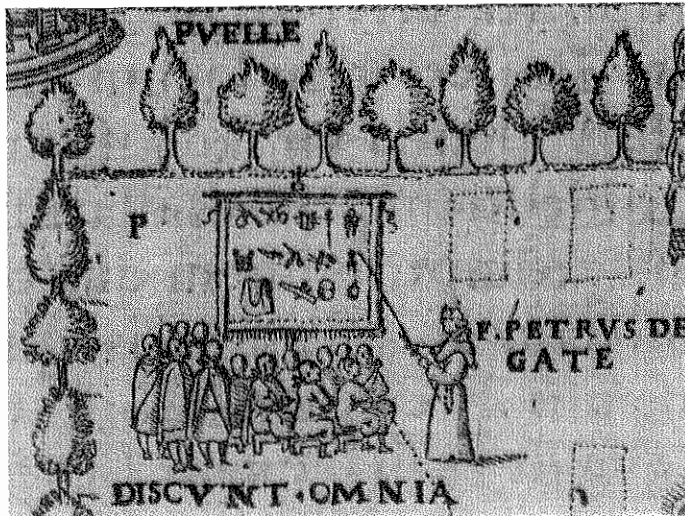 PVELLE
P
F. PETRVS DE
GATE
DISCVNT·OMNIA